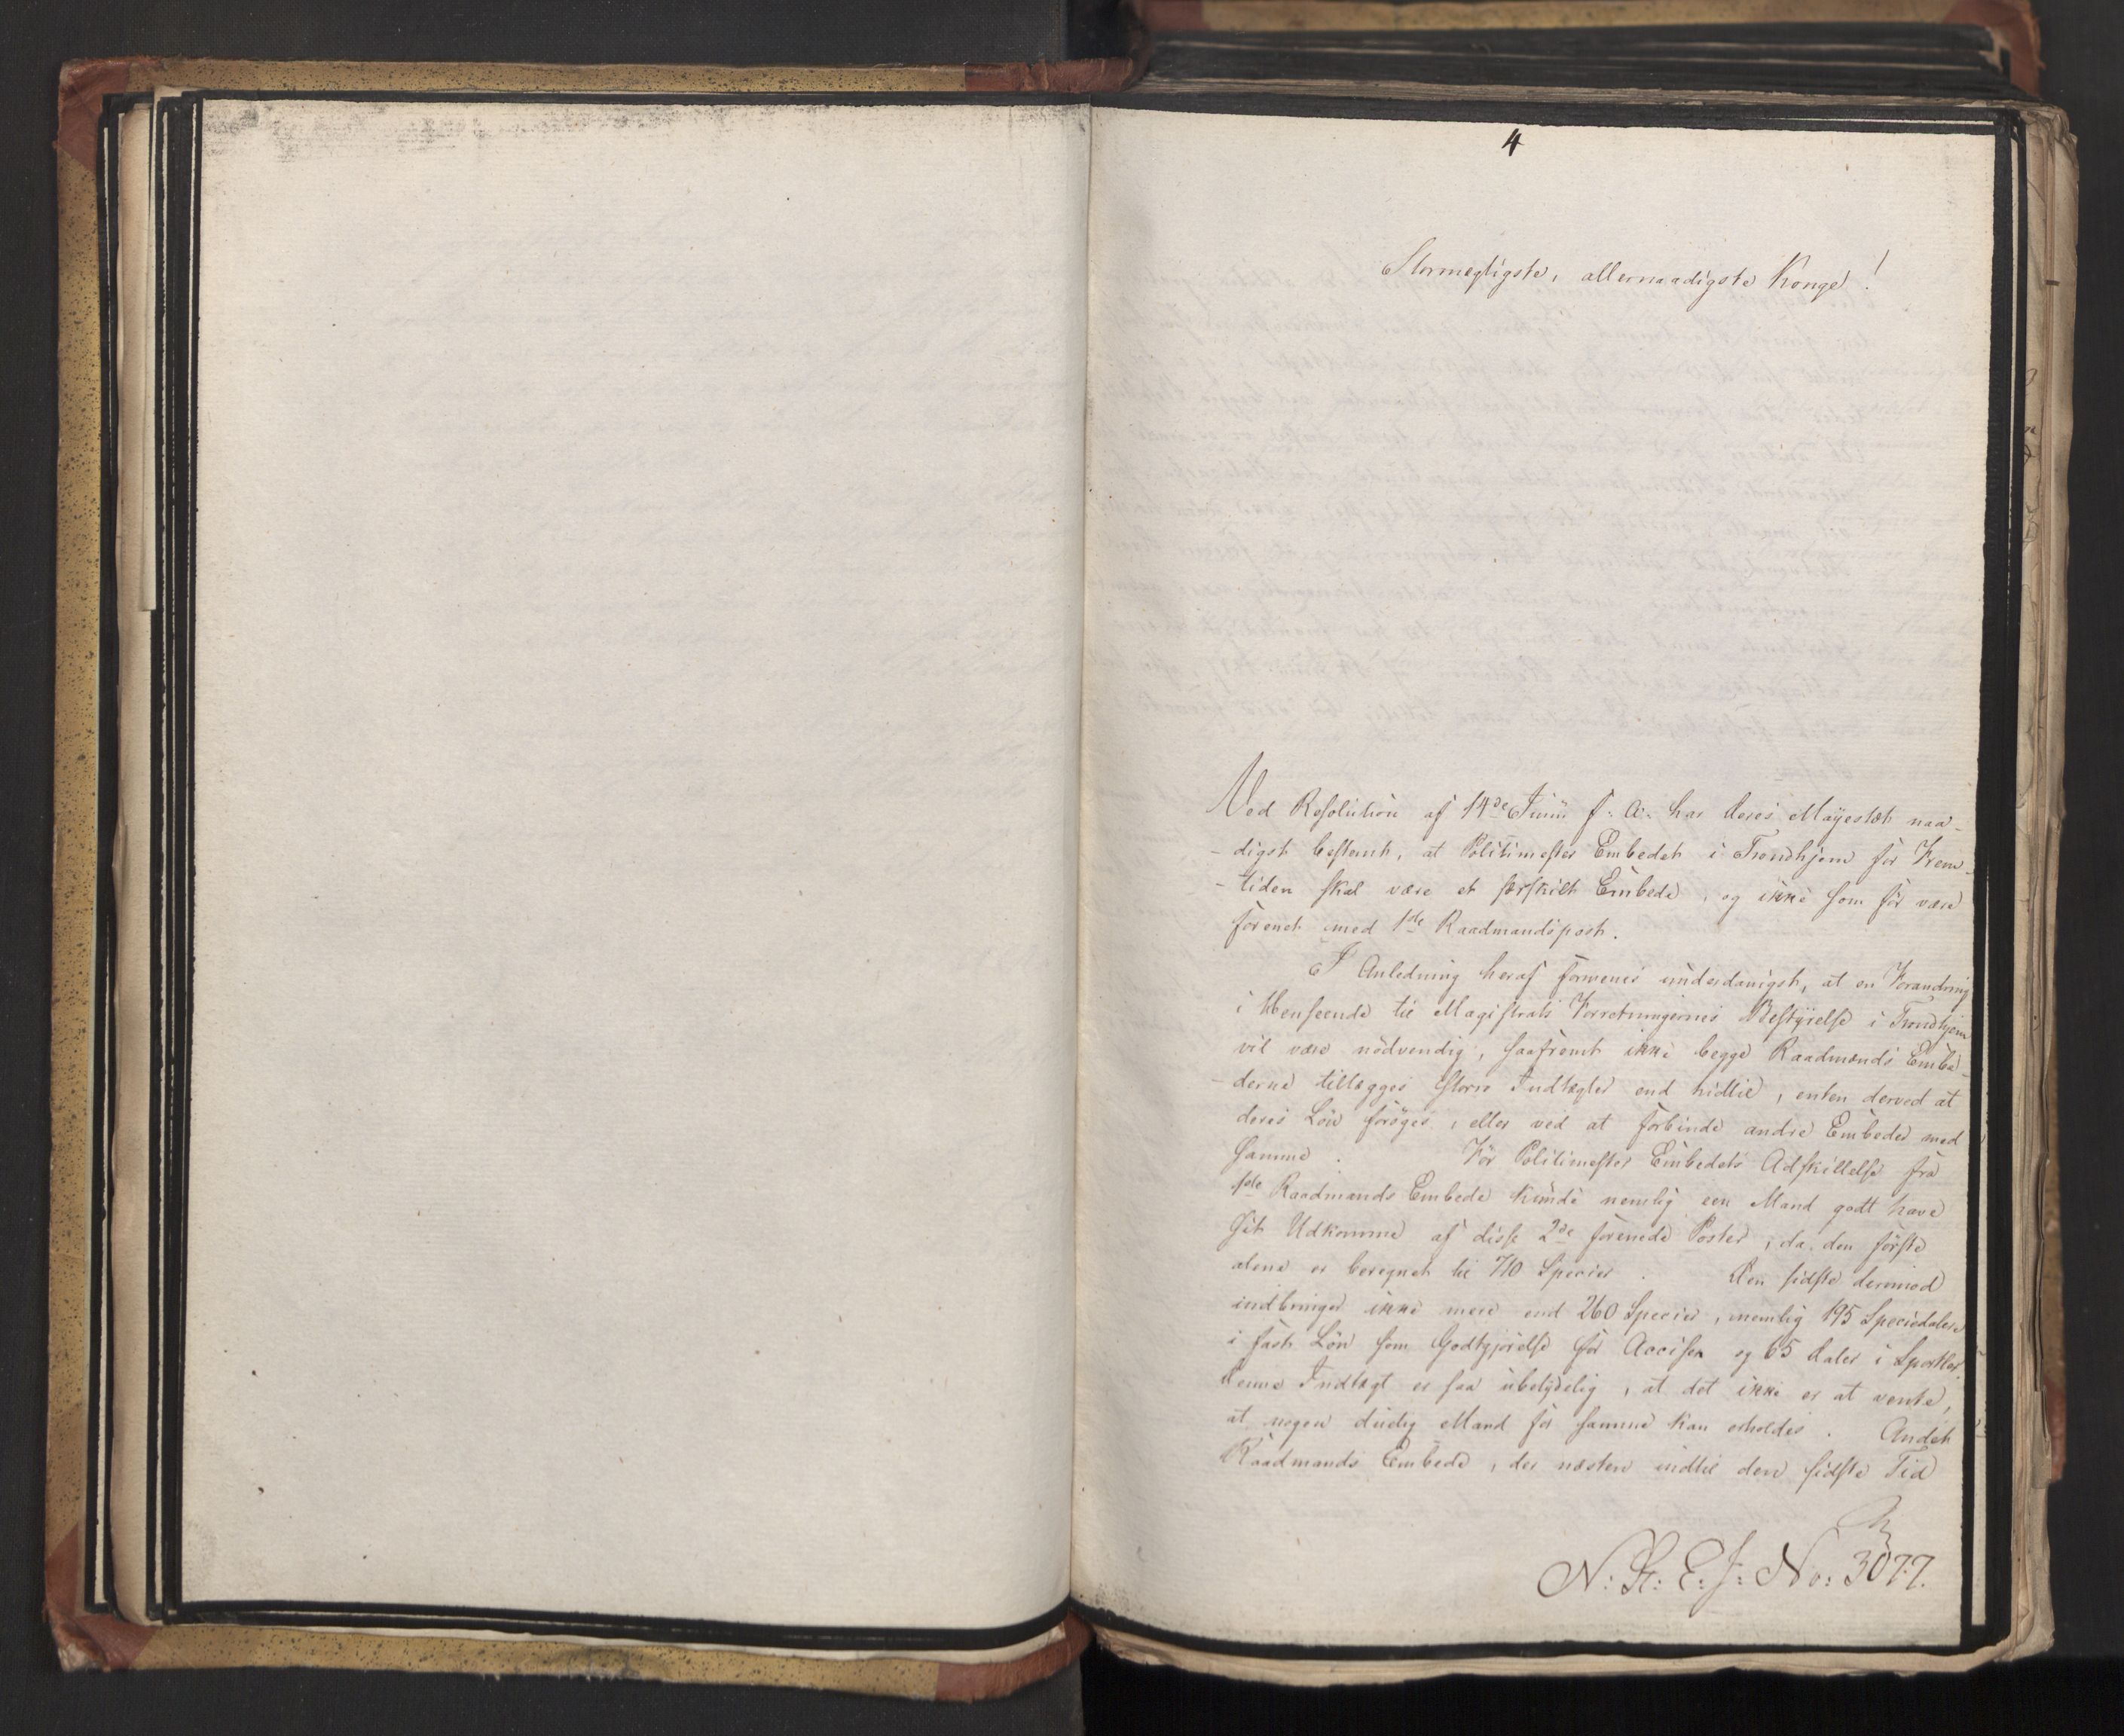 4
Stormegtigste, allernaadigste Konge!
Ved Resolution af 14de Junii f: A: har Deres Mayestæt naa-
-digst bestemt, at Politimester Embedet i Trondhjem for Frem-
-tiden skal være et særskilt Embede, og ikke som før være
forenet med 1de Raadmandspost.
I Anledning heraf formenes underdanigst, at en Forandring
i Henseende til Magistrats Forretningernes Bestyrelse i Trondhjem
vil være nødvendig, saafremt ikke begge Raadmands Embe-
-derne tillægges større Indtægter end hidtil, enten derved at
deres Løn forøges, eller ved at forbinde andre Embeder med
samme. Før Politimester Embedets Adskillelse fra
1ste Raadmands Embede kunde nemlig een Mand godt have
sit Udkomme af disse 2de forenede Poster, da den første
alene er beregnet til 710 Species. Den sidste derimod
indbringer ikke mere end 260 Species, nemlig 195 Speciedalere
i fast Løn som Godtgjørelse for Accisen og 65 Daler i Sportler.
Denne Indtægt er saa ubetydelig, at det ikke er at vente,
at nogen duelig Mand for samme kan erholdes. Andet
Raadmands Embede, der næsten indtil den sidste Tid
N: R: E: J: No: 3077.